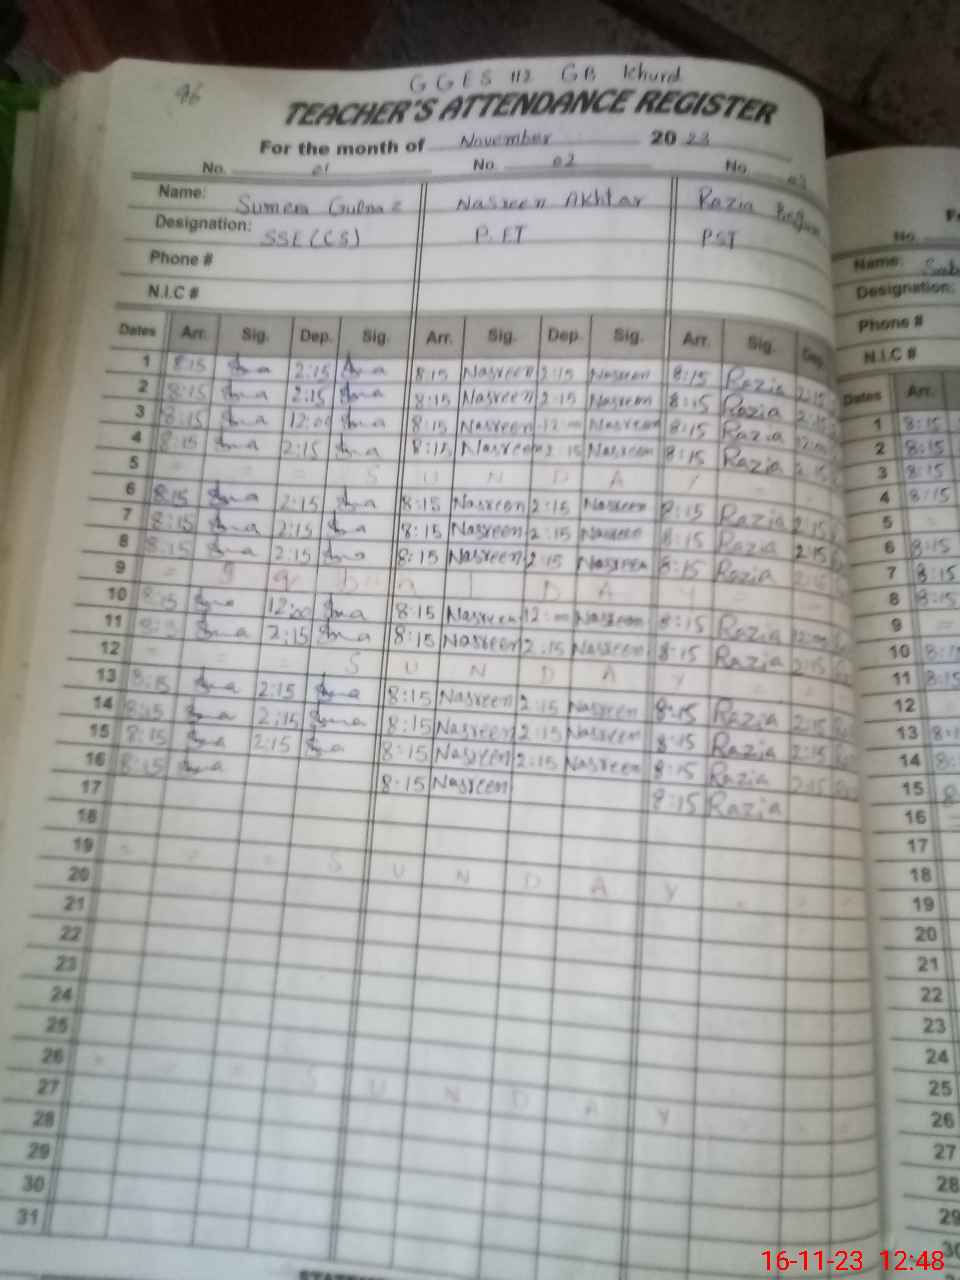 96
GGES 112 GB Khurd
TEACHER'S ATTENDANCE REGISTER
For the month of November 2023
No. 01 No. 02 No. 03
Name: Sumera Gulnaz Nasreen Akhtar Razia
Designation: SSE(CS) PST
Phone #
N.I.C #
Dates Arr. Sig. Dep. Sig. Arr. Sig. Dep. Sig. Arr. Sig. Dep.
1 8:15 2:15 8:15 Nasreen 2:15 Nasreen 8:15 Razia 2:15
2 8:15 2:15 8:15 Nasreen 2:15 Nasreen 8:15 Razia 2:15
3 8:15 12:00 8:15 Nasreen 12:00 Nasreen 8:15 Razia 12:00
4 8:15 2:15 8:15 Nasreen 2:15 Nasreen 8:15 Razia 2:15
5 S U N D A Y
6 8:15 2:15 8:15 Nasreen 2:15 Nasreen 8:15 Razia 2:15
7 8:15 2:15 8:15 Nasreen 2:15 Nasreen 8:15 Razia 2:15
8 8:15 2:15 8:15 Nasreen 2:15 Nasreen 8:15 Razia 2:15
9 D A Y
10 8:15 12:00 8:15 Nasreen 12:00 Nasreen 8:15 Razia 12:00
11 8:15 2:15 8:15 Nasreen 2:15 Nasreen 8:15 Razia 2:15
12 S U N D A Y
13 8:15 2:15 8:15 Nasreen 2:15 Nasreen 8:15 Razia 2:15
14 8:15 2:15 8:15 Nasreen 2:15 Nasreen 8:15 Razia 2:15
15 8:15 2:15 8:15 Nasreen 2:15 Nasreen 8:15 Razia 2:15
16 8:15 8:15 Nasreen 8:15 Razia
17
18
19 S U N D A Y
20
21
22
23
24
25
26 S U N D A Y
27
28
29
30
31
No.
Name:
Designation:
Phone #
N.I.C #
Dates Arr.
1 8:15
2 8:15
3 8:15
4 8:15
5
6 8:15
7 8:15
8 8:15
9
10 8:15
11 8:15
12
13
14
15
16
17
18
19
20
21
22
23
24
25
26
27
28
29
30
16-11-23 12:48